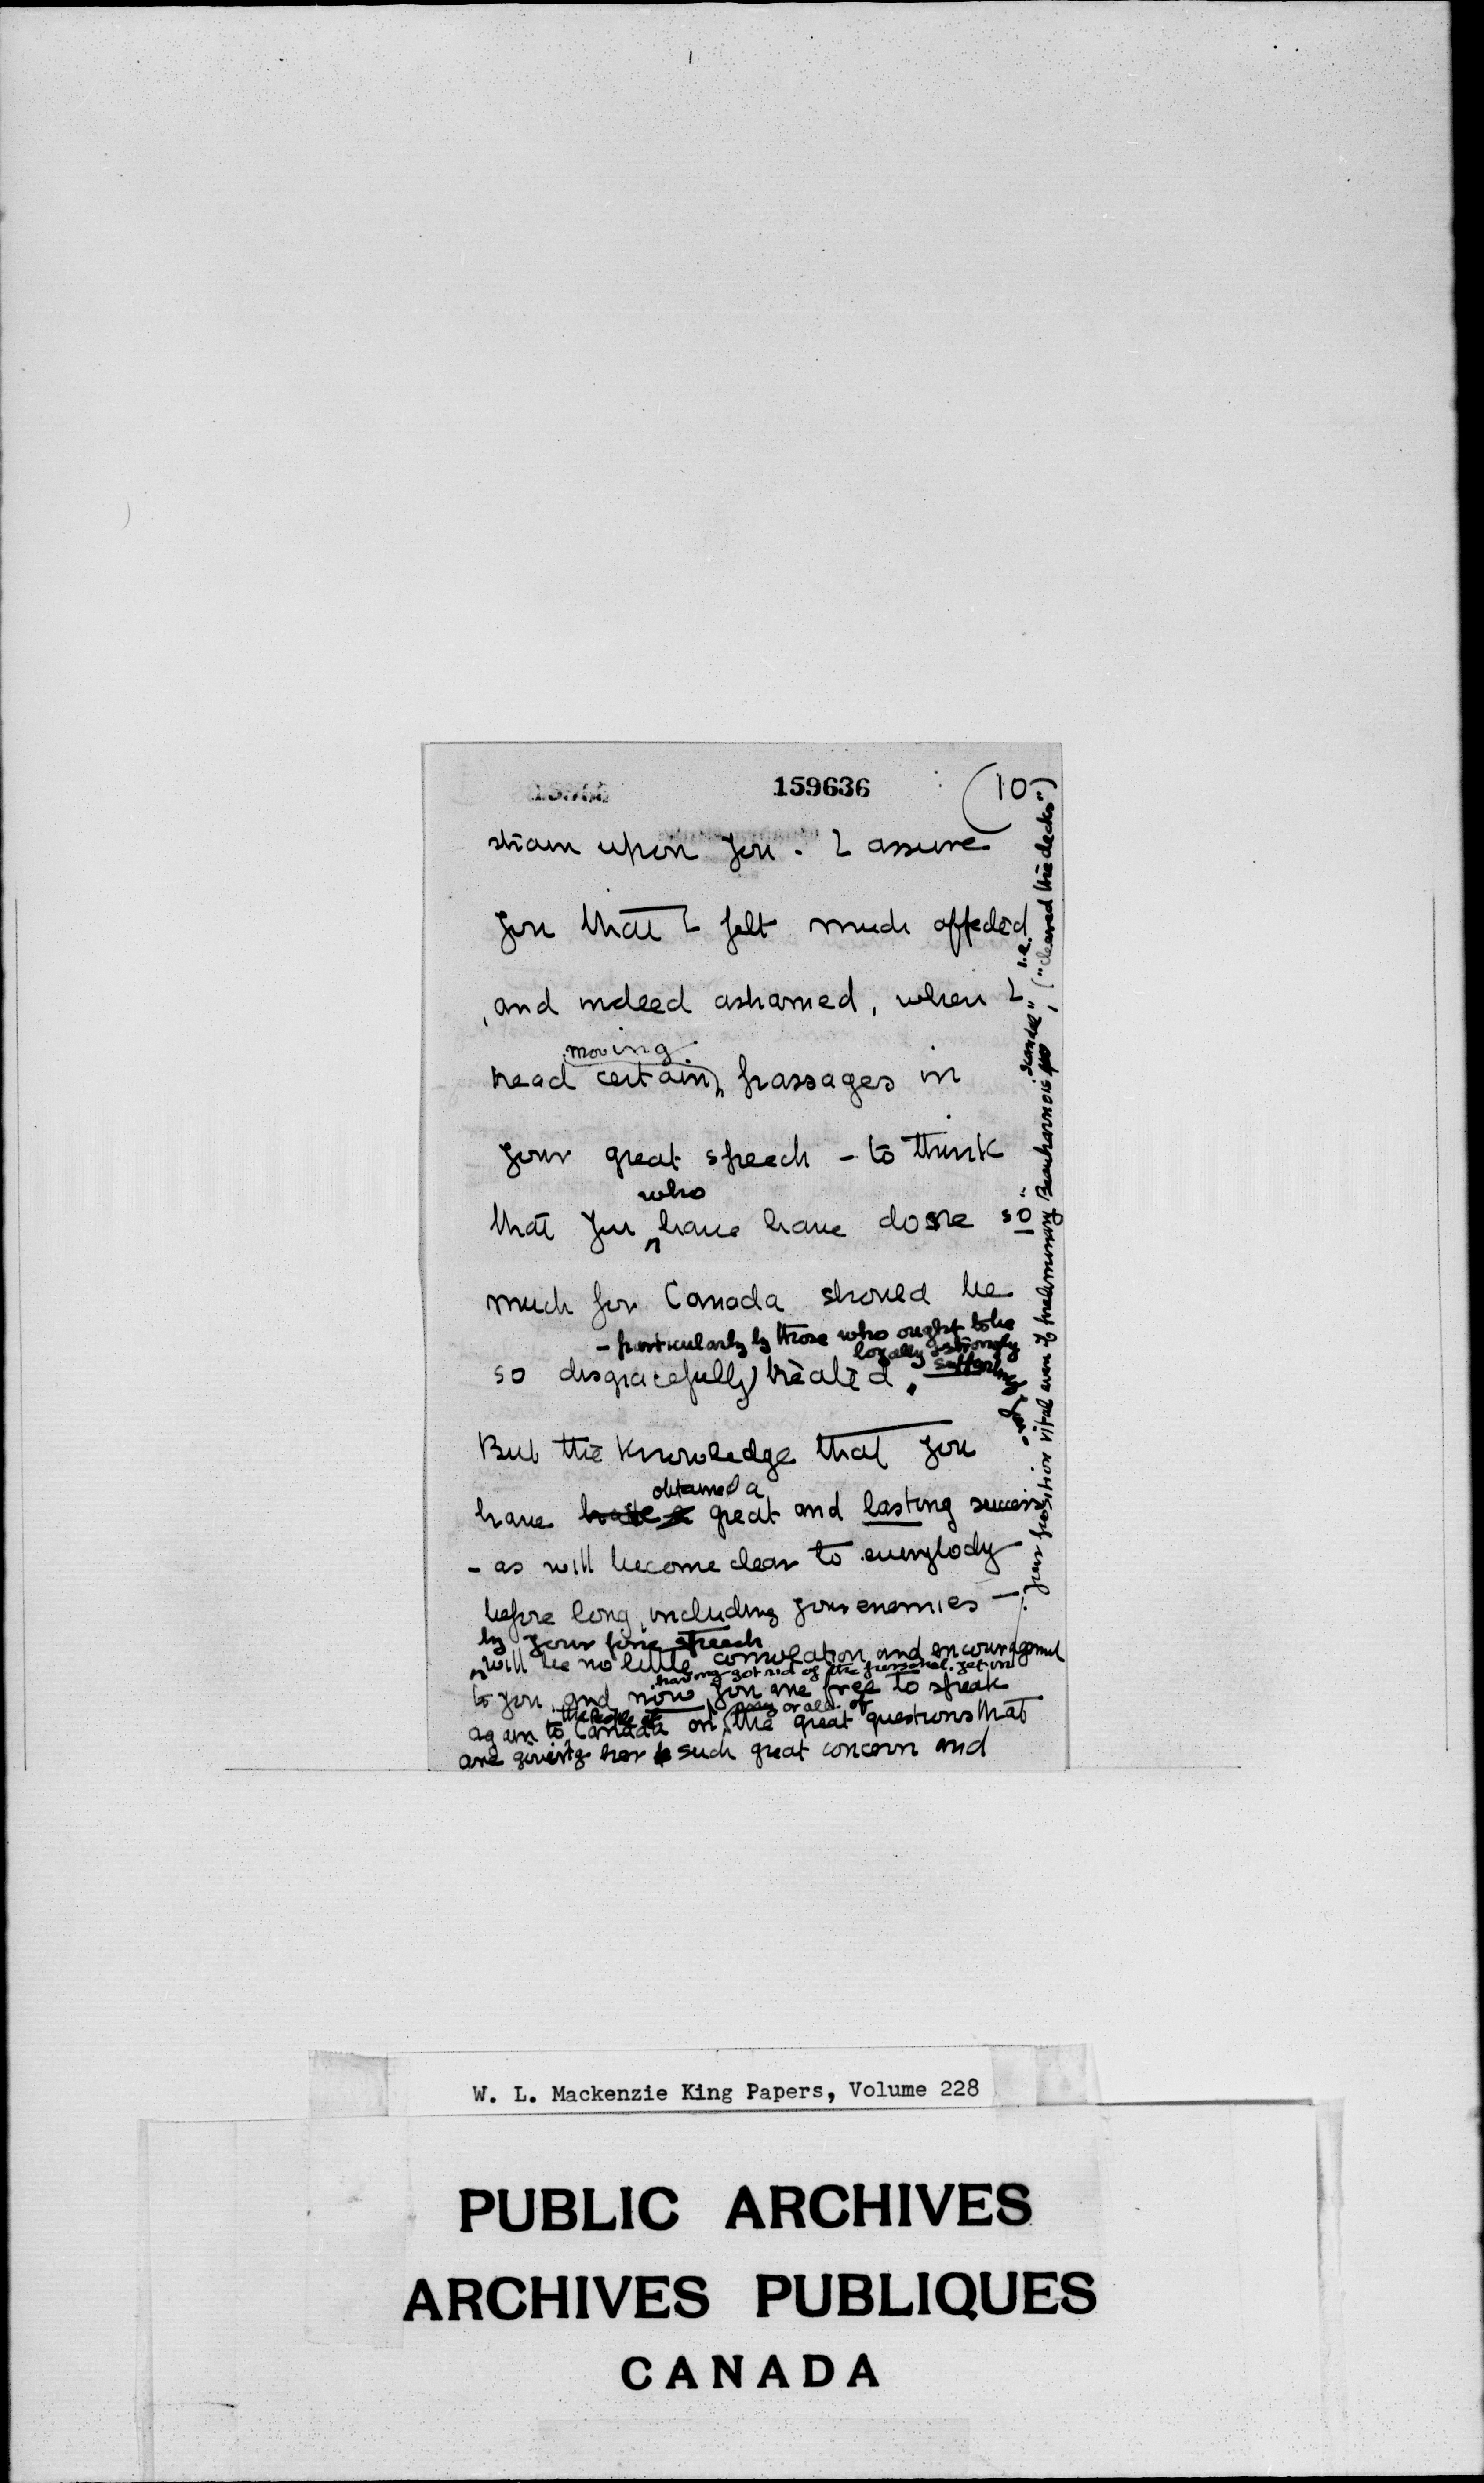 159636
(10)
strain upon you. I assure
you that I felt much affected
, and indeed ashamed, when I
moving
read certain passages in
your great speech - to think
who
that you have have done so
much for Canada should be
- particularly by those who ought to be
loyally & strongly
so disgracefully treated.
But the knowledge that you
obtained a
have have a great and lasting success
- as will become clear to everybody
before long, including your enemies -
by your fine speech
will be no little consolation and encouragement
having got rid of the personal, yet in
to you, and now you are free to speak
the people of any or all of
again to Canada on the great questions that
are giving her such great concern and
your position vital even if preliminary Beauharnois "scandal" i.e. ("cleared the decks")
W. L. Mackenzie King Papers, Volume 228
PUBLIC ARCHIVES
ARCHIVES PUBLIQUES
CANADA